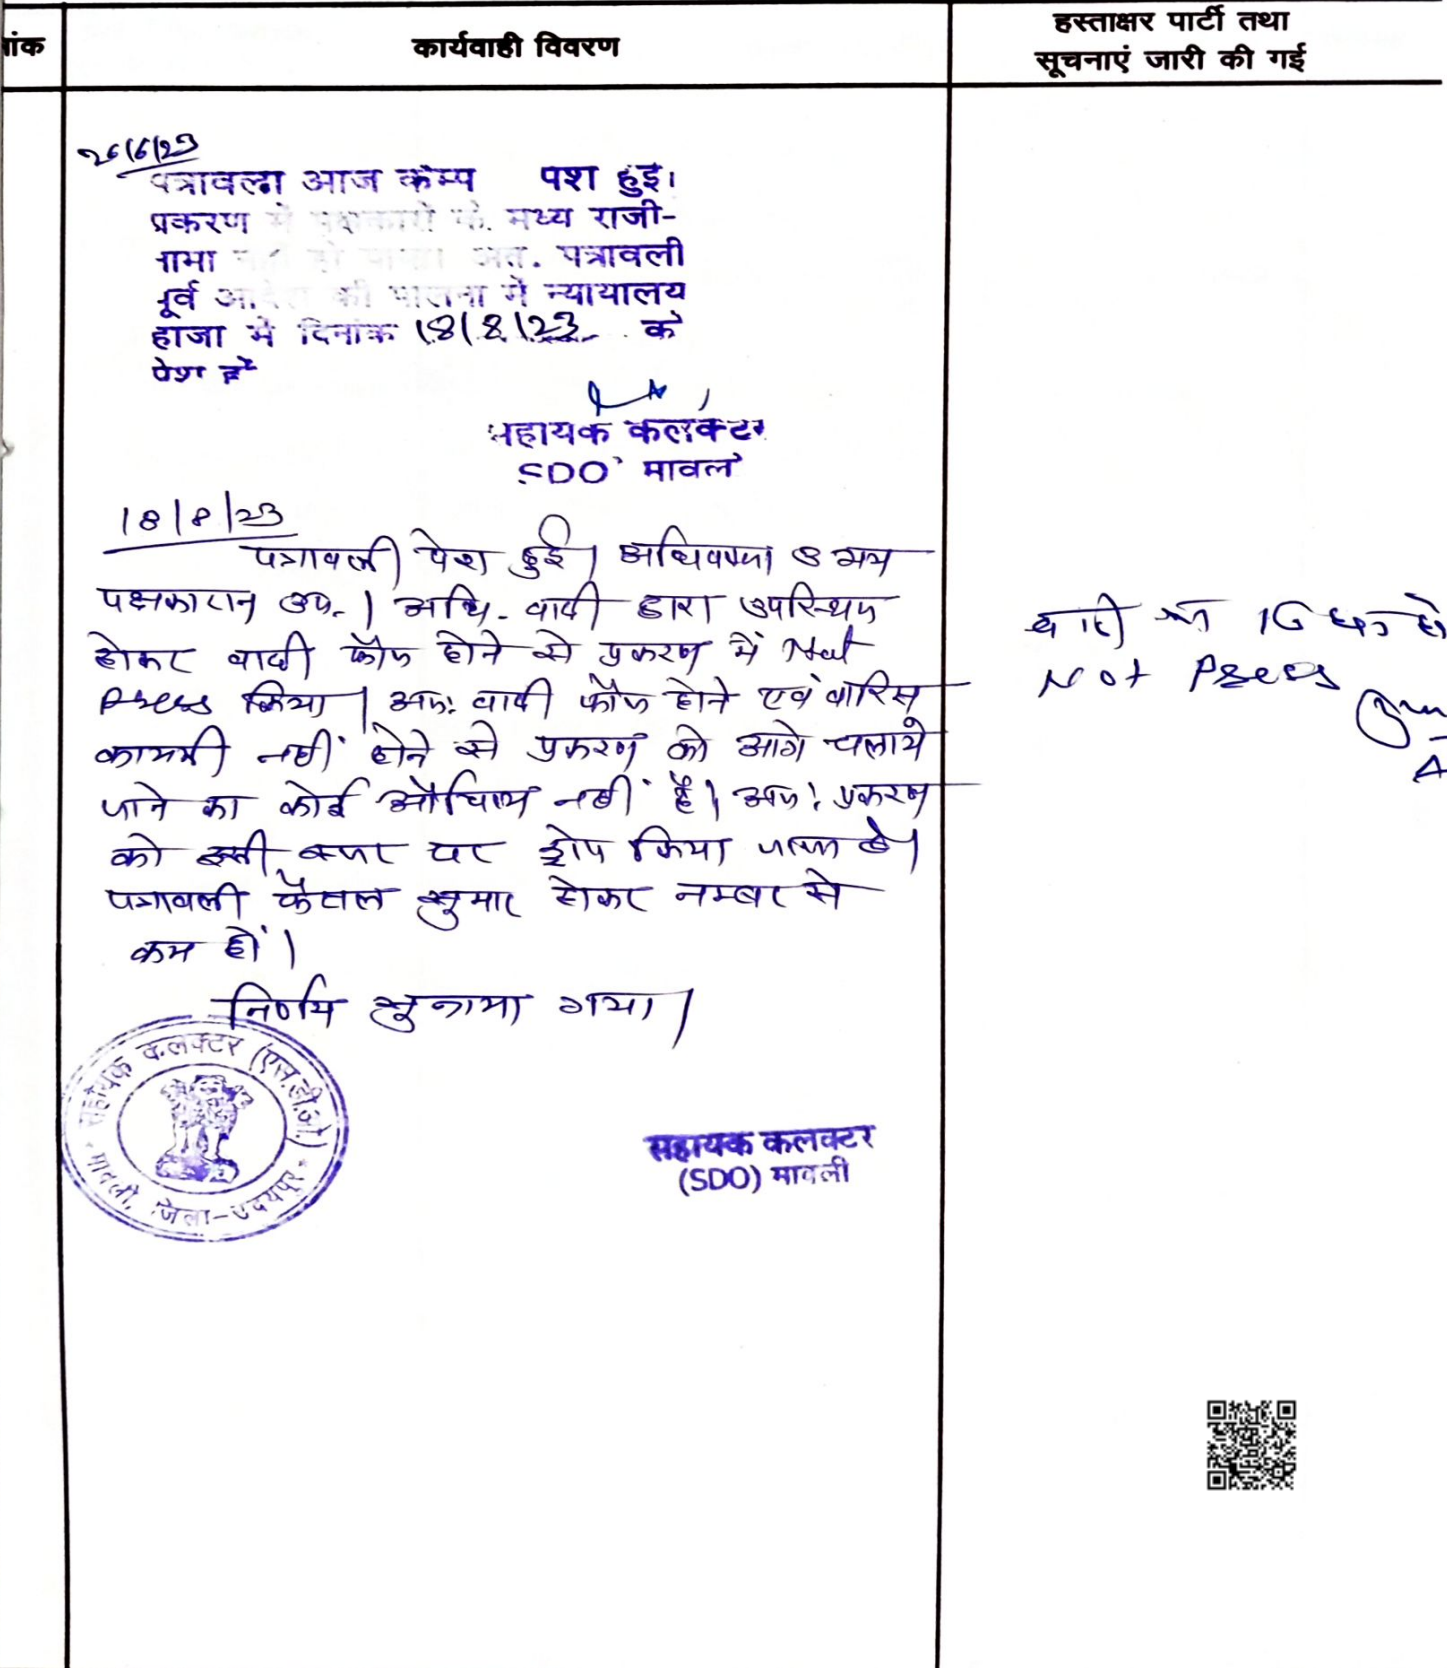 ांक
कार्यवाही विवरण
हस्ताक्षर पार्टी तथा
सूचनाएं जारी की गई
26/6/23
पत्रावली आज केम्प पेश हुई।
प्रकरण में पक्षकारों के मध्य राजी-
नामा नहीं हो पाया। अतः पत्रावली
पूर्व आदेश की पालना में न्यायालय
हाजा में दिनांक 18/8/23 को
पेश हो
सहायक कलक्टर
SDO मावली
18/8/23
पत्रावली पेश हुई। अधिवक्ता उभय
पक्षकारान उप.। अधि. वादी द्वारा उपस्थित
होकर वादी फौत होने से प्रकरण में Not
Press किया। अतः वादी फौत होने एवं वारिस
कायमी नहीं होने से प्रकरण को आगे चलाये
जाने का कोई औचित्य नहीं है। अतः प्रकरण
को इसी स्तर पर ड्रोप किया जाता है।
पत्रावली फैसल शुमार होकर नम्बर से
कम हो।
निर्णय सुनाया गया।
सहायक कलक्टर (एस.डी.ओ.)
मावली, जिला-उदयपुर
सहायक कलक्टर
(SDO) मावली
Not Press